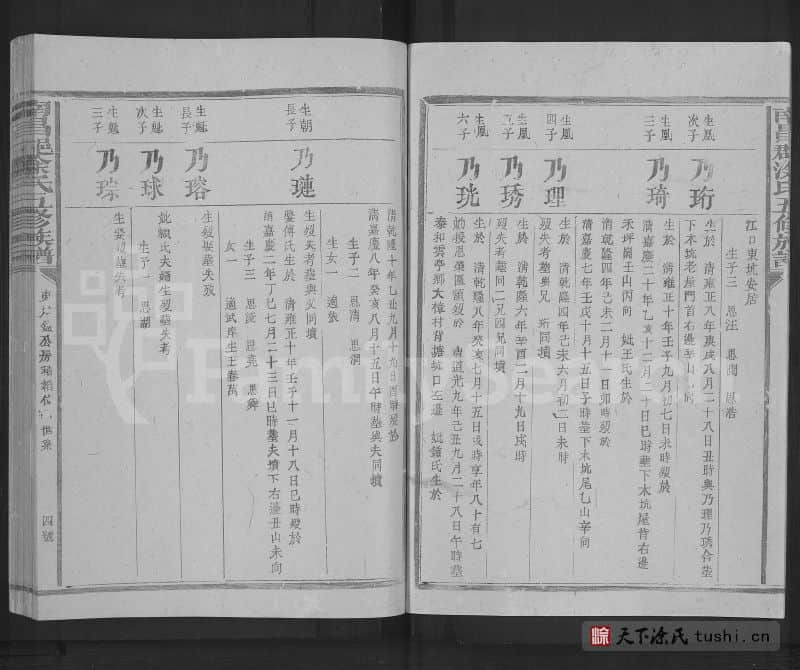 江口東坑安居
生子三 思汪 思潤 思浩
生鳳
次子
乃珩
生於 清雍正八年庚戌八月二十八日丑時與乃理乃琇合塟
下木坑老屋門首右邊辛山乙向
生鳳
三子
乃琦
生於 清雍正十年壬子九月初七日未時歿於
清嘉慶二十年乙亥十二月二十日巳時塟下木坑屋背右邊
禾坪崗壬山丙向 妣王氏生於
清乾隆四年己未二月十日卯時歿於
清嘉慶七年壬戌十月十五日子時塟下木坑尾乙山辛向
生鳳
四子
乃理
生於 清乾隆四年己未六月初二日未時
歿失考塟與兄 珩同墳
生鳳
五子
乃琇
生於 清乾隆六年辛酉二月十九日戌時
歿失考塟同二兄四兄同墳
生鳳
六子
乃珖
生於 清乾隆八年癸亥七月十五日戌時享年八十有七
勅授恩榮匾額歿於 清道光九年己丑九月二十八日午時塟
泰和雲亭鄉大樟村背擔坑口左邊 妣鍾氏生於
清乾隆十年乙丑九月十九日酉時歿於
清嘉慶八年癸亥八月十五日午時塟與夫同墳
生子二 思清 思澗
女一 適張
生朝
長子
乃璉
生歿失考塟與父同墳
娶傅氏生於 清雍正十年壬子十一月十八日巳時歿於
清嘉慶二年丁巳七月二十三日巳時塟夫墳下右邊丑山未向
生子三 思浚 思堯 思霽
女一 適試庠生王春萬
生魁
長子
乃瑢
生歿塟失攷
生魁
次子
乃球
妣 氏夫婦生歿塟失考
生子一 思湖
生魁
三子
乃琮
生娶歿塟失考
四號
天下涂氏 tushi.cn
FamilySearch